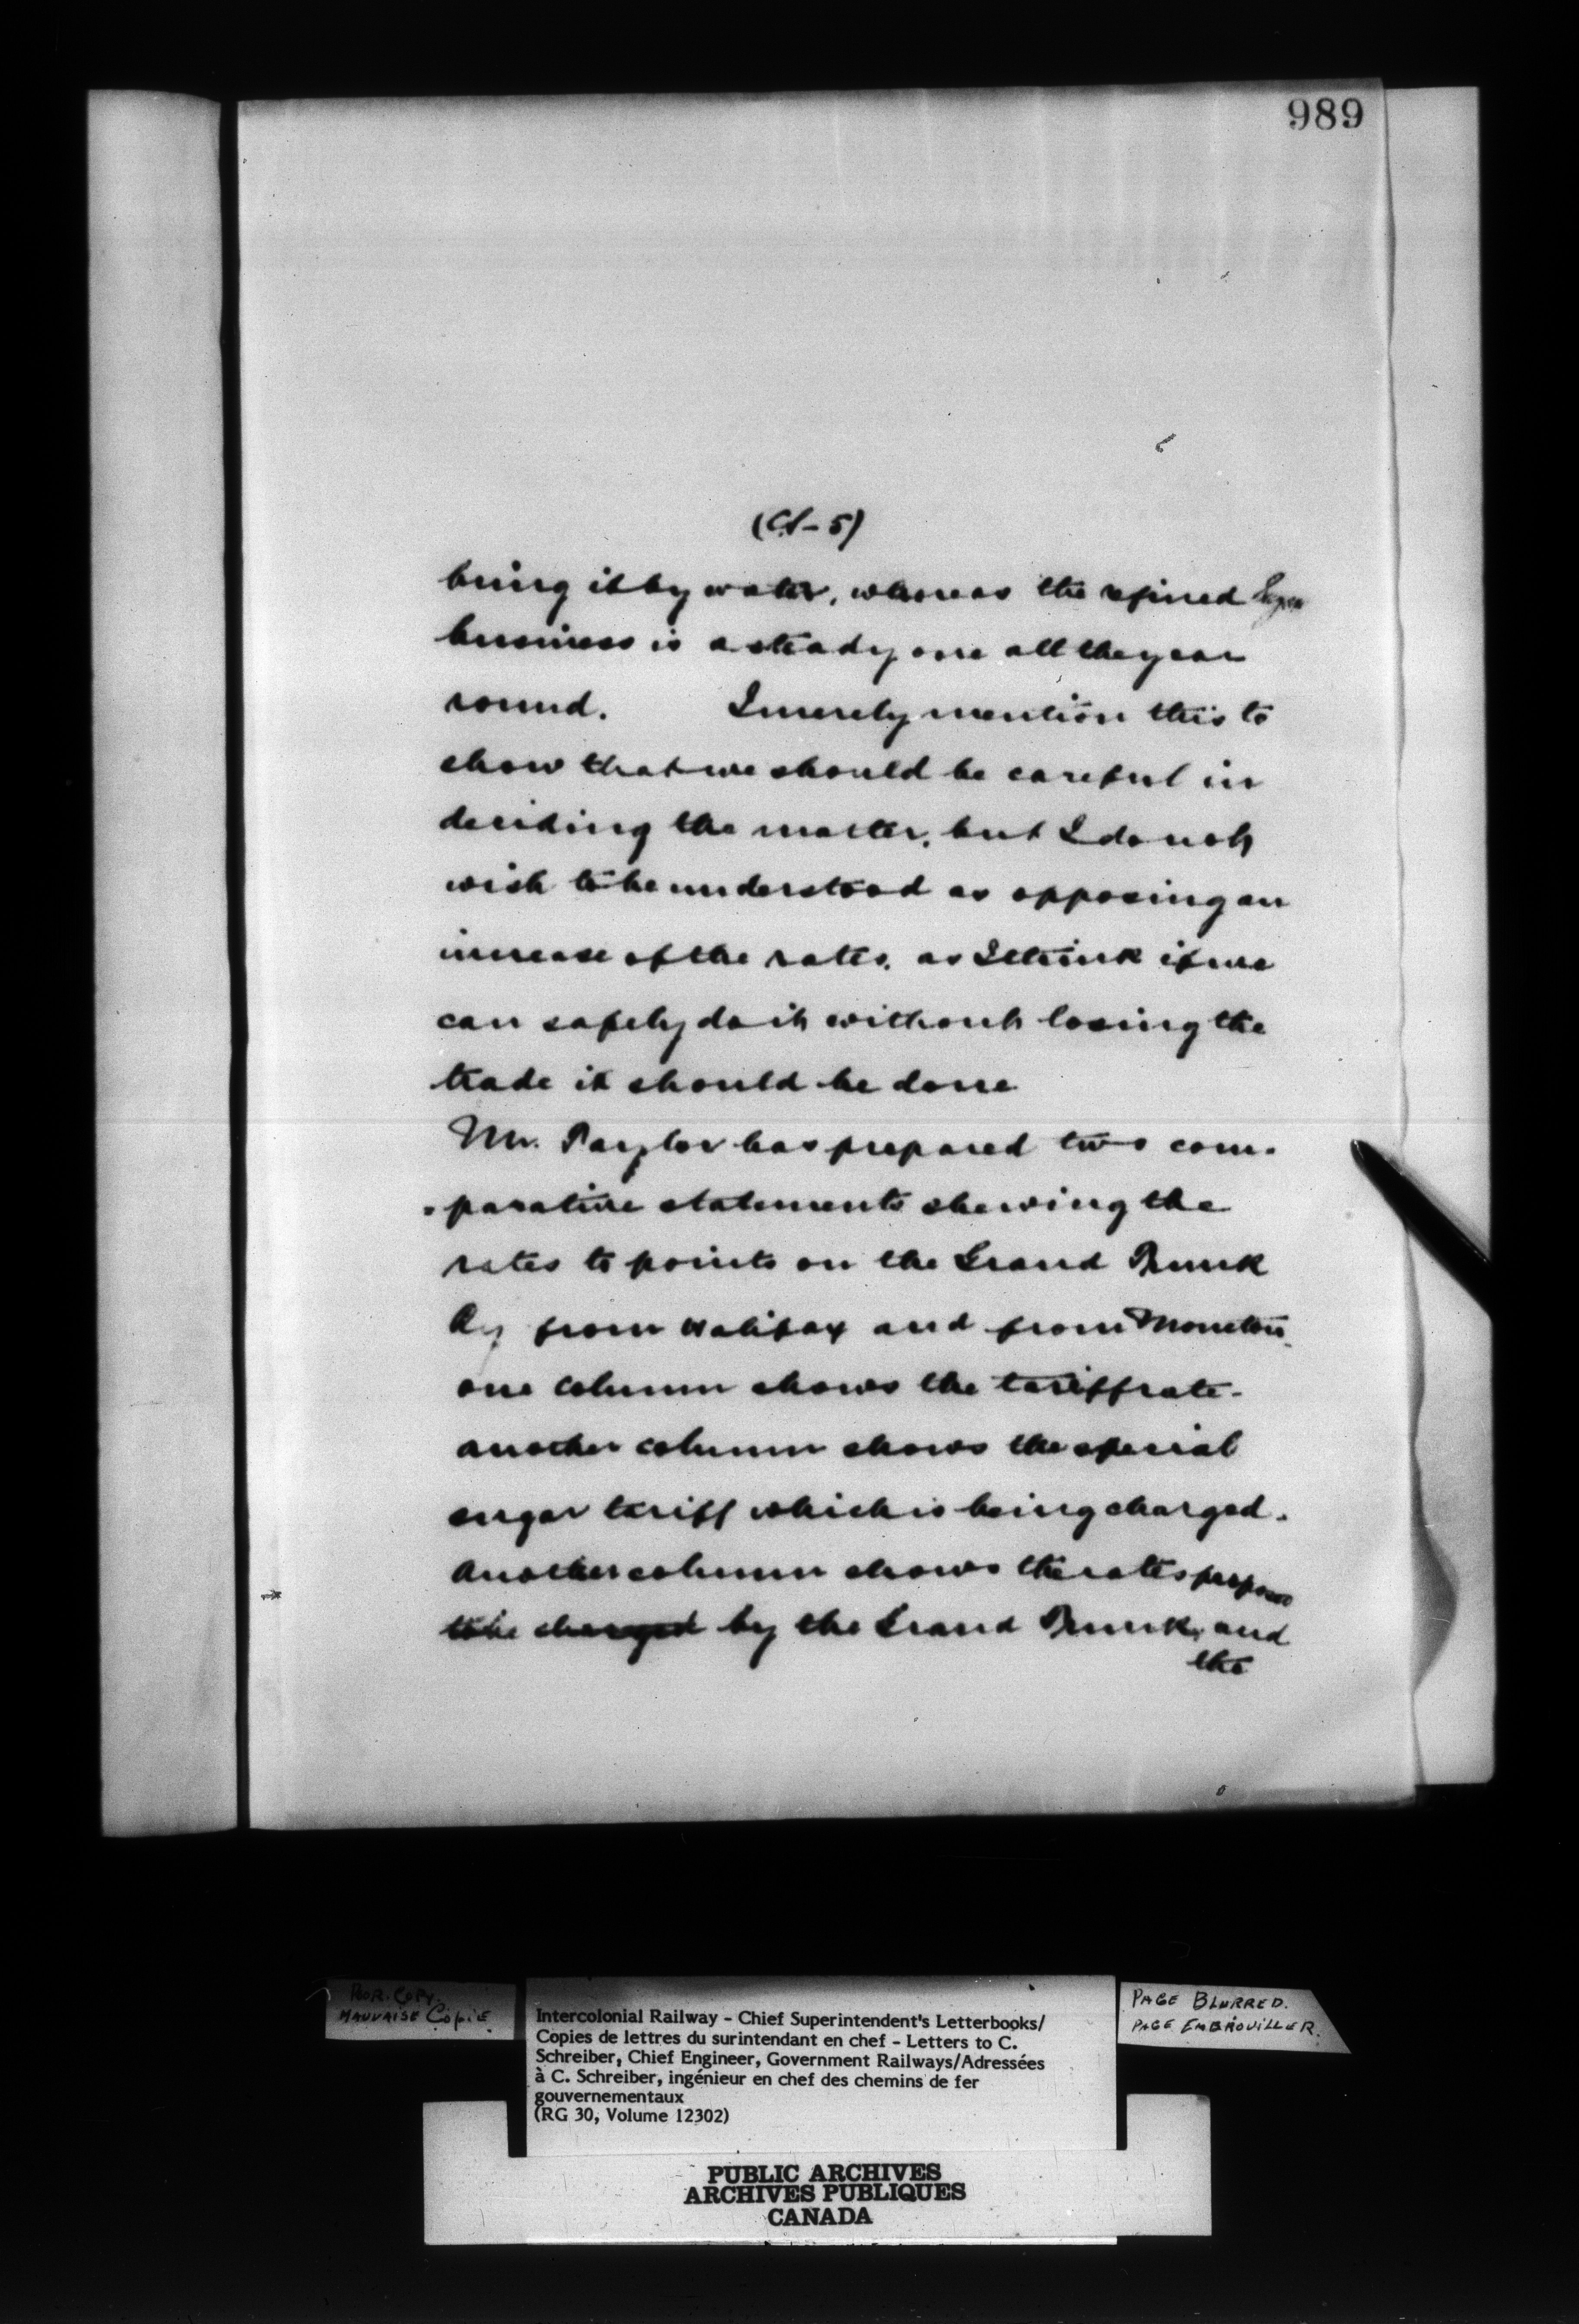 989
(CS-5)
bring it by water, whereas the refined Sugar
business is a steady one all the year
round. I merely mention this to
show that we should be careful in
deciding the matter, but I do not
wish to be understood as opposing an
increase of the rates, as I think if we
can safely do it without losing the
trade it should be done
Mr. Taylor has prepared two com-
-parative statements shewing the
rates to points on the Grand Trunk
Ry from Halifax and from Moncton.
one column shows the tariff rate.
another column shows the special
sugar tariff which is being charged.
Another column shows the rates proposed
to be charged by the Grand Trunk, and
the
POOR COPY.
MAUVAISE COPIE
Intercolonial Railway - Chief Superintendent's Letterbooks/
Copies de lettres du surintendant en chef - Letters to C.
Schreiber, Chief Engineer, Government Railways/Adressées
à C. Schreiber, ingénieur en chef des chemins de fer
gouvernementaux
(RG 30, Volume 12302)
PAGE BLURRED.
PAGE EMBROUILLER.
PUBLIC ARCHIVES
ARCHIVES PUBLIQUES
CANADA